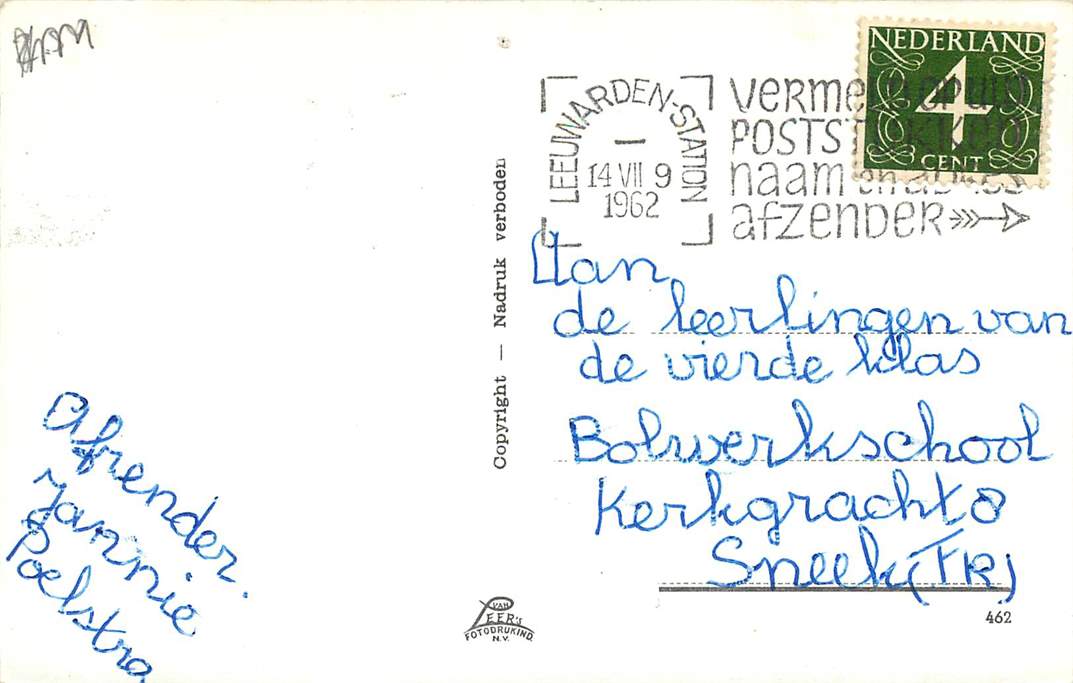 NEDERLAND
4
CENT
LEEUWARDEN-STATION
14 VII 9
1962
VERMELD OP UW
POSTSTUKKEN
naam en adres
afzender
Aan
de leerlingen van
de vierde klas
Bolwerkschool
Kerkgracht 8
Sneek (FR)
Afzender.
Jannie
Poelstra
Copyright — Nadruk verboden
VAN
LEER's
FOTODRUKIND.
N.V.
462